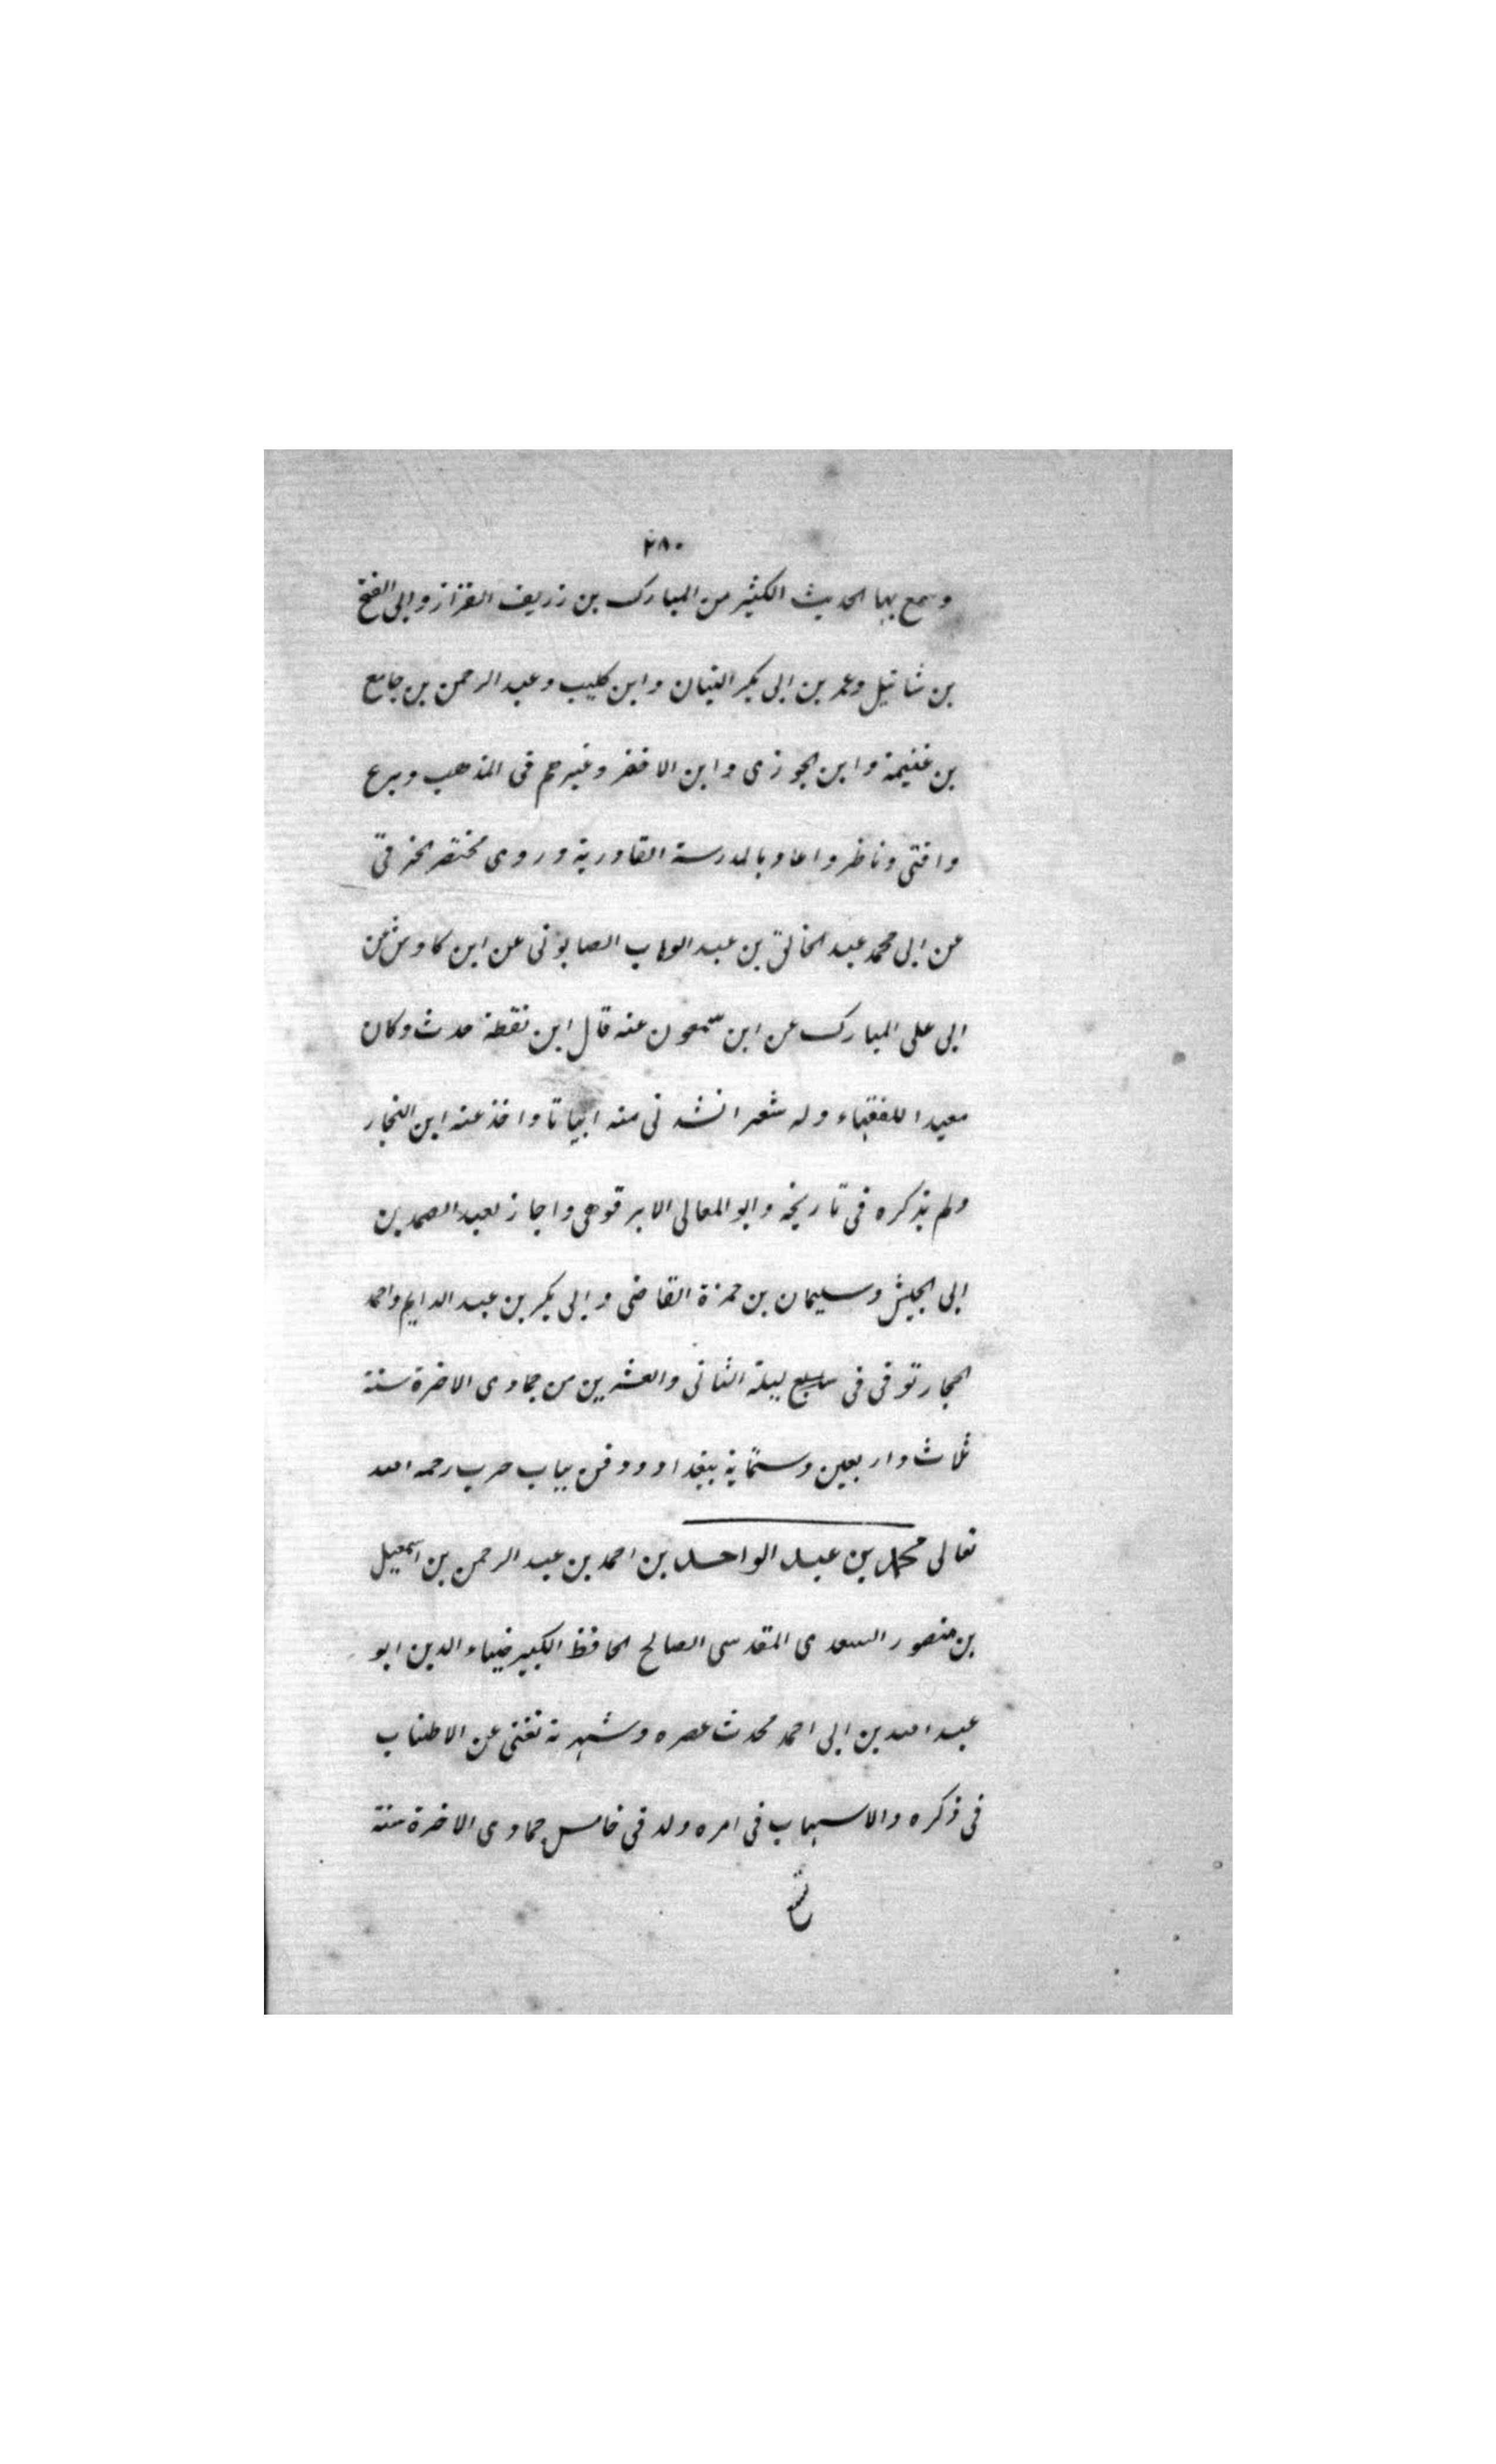 ٢٨٠
وسمع بها الحديث الكثير من المبارك بن زريف القزاز وابى الفتح
بن شاتيل وعمر بن ابى بكر التبان وابن كليب وعبد الرحمن بن جامع
بن غنيمة وابن الجوزى وابن الاخضر وغيرهم فى المذهب وبرع
وافتى وناظر واعاد بالمدرسة القادرية وروى مختصر الخرقى
عن ابى محمد عبد الخالق بن عبد الوهاب الصابونى عن ابن كاوش عن
ابى على المبارك عن ابن سمعون عنه قال ابن نقطة حدث وكان
معيدا للفقهاء وله شعر انشدنى منه ابياتا واخذ عنه ابن النجار
ولم يذكره فى تاريخه وابو المعالى الابرقوهى واجاز لعبد الصمد بن
ابى الجيش وسليمان بن حمزة القاضى وابى بكر بن عبد الدايم واحمد
الحجار توفى فى ليلة الثانى والعشرين من جمادى الاخرة سنة
ثلاث واربعين وستماية ببغداد ودفن بباب حرب رحمه الله
تعالى محمد بن عبد الواحد بن احمد بن عبد الرحمن بن اسمعيل
بن منصور السعدى المقدسى الصالح الحافظ الكبير ضياء الدين ابو
عبد الله بن ابى احمد محدث عصره وشهرته تغنى عن الاطناب
فى ذكره والاسهاب فى امره ولد فى خامس جمادى الاخرة سنة